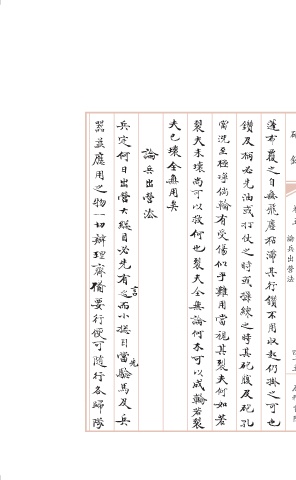 蓬布覆之自無飛塵粘滯其行鑽不用以起仍掛之可也
鑽及柄必先油或打仗之時或操練之時其砲腹及砲孔
當洗至極淨倘輪有受傷似乎難用當視其裂夫何如若
裂夫未壞尚可以救何也裂夫全無論何木可以成輪若裂
夫已壞全無用矣
論兵出營法
兵定何日出營大總目必先有之言而小總目當先驗馬及兵
器並應用之物一切辦理齊備要行便可隨行各歸隊
論兵出營法